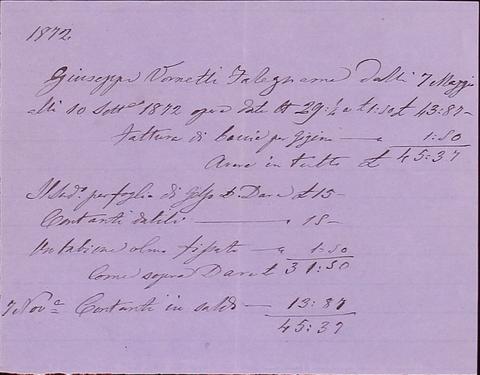 1872.
Giuseppe Vornetti Falegname dalli 7 Maggio
alli 10 Sett.e 1872 opre date N 29:½ a £ 1:50 £ 43:87-
fattura di per - " 1:50
Avere in tutto £ 45:37
Il Sud.o per foglia di Gelso D. Dare £ 15-
Contanti datili - " 15-
Un tabiene olmo - " 1:50
Come sopra Dare £ 31:50
7 Nov.e Contanti in saldo - 13:87
45:37